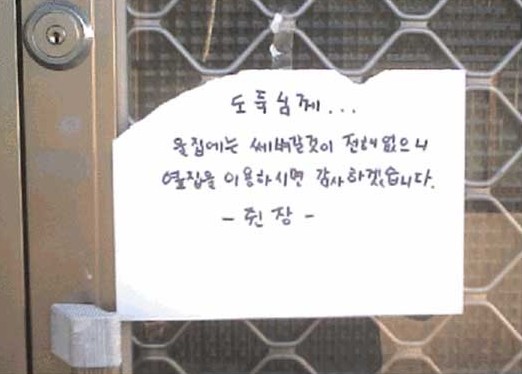 도둑님께...
울집에는 쎄벼갈것이 전혀없으니
옆집을 이용하시면 감사하겠습니다.
- 쥔장 -